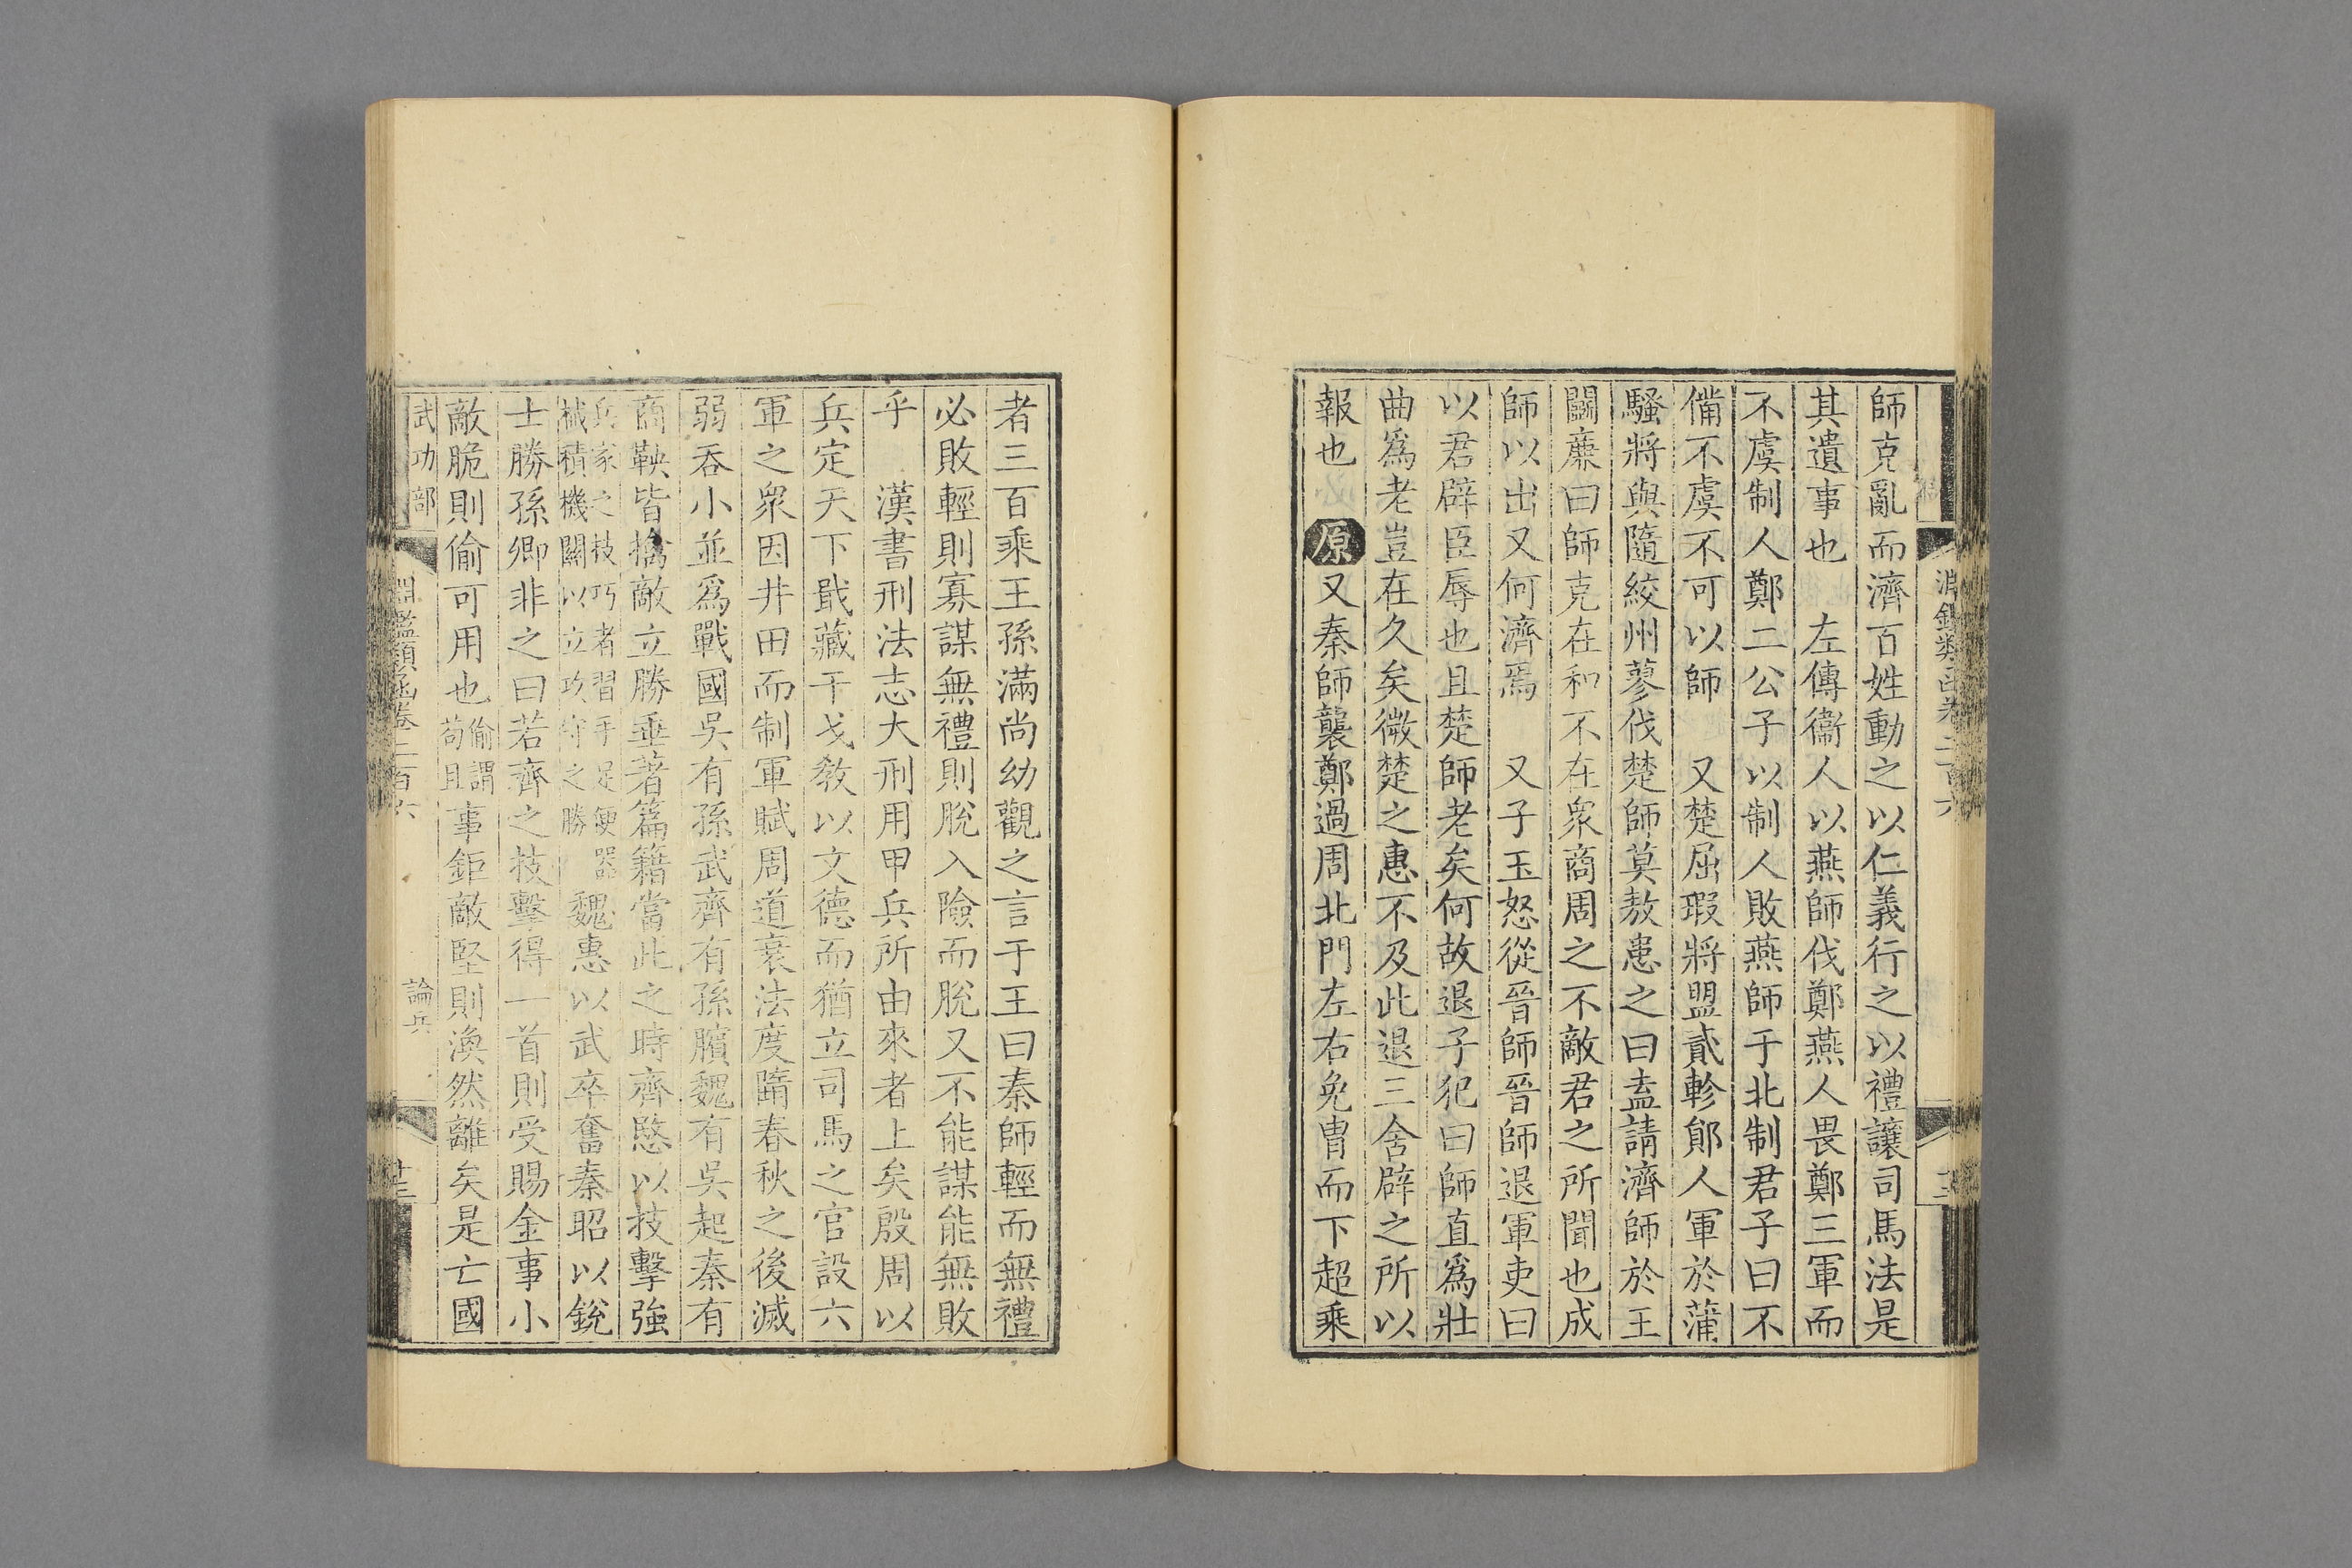 師克亂而濟百姓動之以仁義行之以禮讓司馬法是
其遺事也　左傳衞人以燕師伐鄭燕人畏鄭三軍而
不虞制人鄭二公子以制人敗燕師于北制君子曰不
備不虞不可以師　又楚屈瑕將盟貳軫鄖人軍於蒲
騷將與隨絞州蓼伐楚師莫敖患之曰盍請濟師於王
鬭廉曰師克在和不在衆商周之不敵君之所聞也成
師以出又何濟焉　又子玉怒從晉師晉師退軍吏曰
以君辟臣辱也且楚師老矣何故退子犯曰師直爲壯
曲爲老豈在久矣微楚之惠不及此退三舍辟之所以
報也　原又秦師襲鄭過周北門左右免冑而下超乘
者三百乘王孫滿尚幼觀之言于王曰秦師輕而無禮
必敗輕則寡謀無禮則脫入險而脫又不能謀能無敗
乎　漢書刑法志大刑用甲兵所由來者上矣殷周以
兵定天下戢藏干戈教以文德而猶立司馬之官設六
軍之衆因井田而制軍賦周道衰法度隳春秋之後滅
弱吞小並爲戰國吳有孫武齊有孫臏魏有吳起秦有
商鞅皆擒敵立勝垂著篇籍當此之時齊愍以技擊強
兵家之技巧者習手足便器
械積機關以立攻守之勝
魏惠以武卒奮秦昭以銳
士勝孫卿非之曰若齊之技擊得一首則受賜金事小
敵脆則偷可用也
偷謂
苟且
事鉅敵堅則渙然離矣是亡國
武功部
淵鑑類函卷二百六
論兵